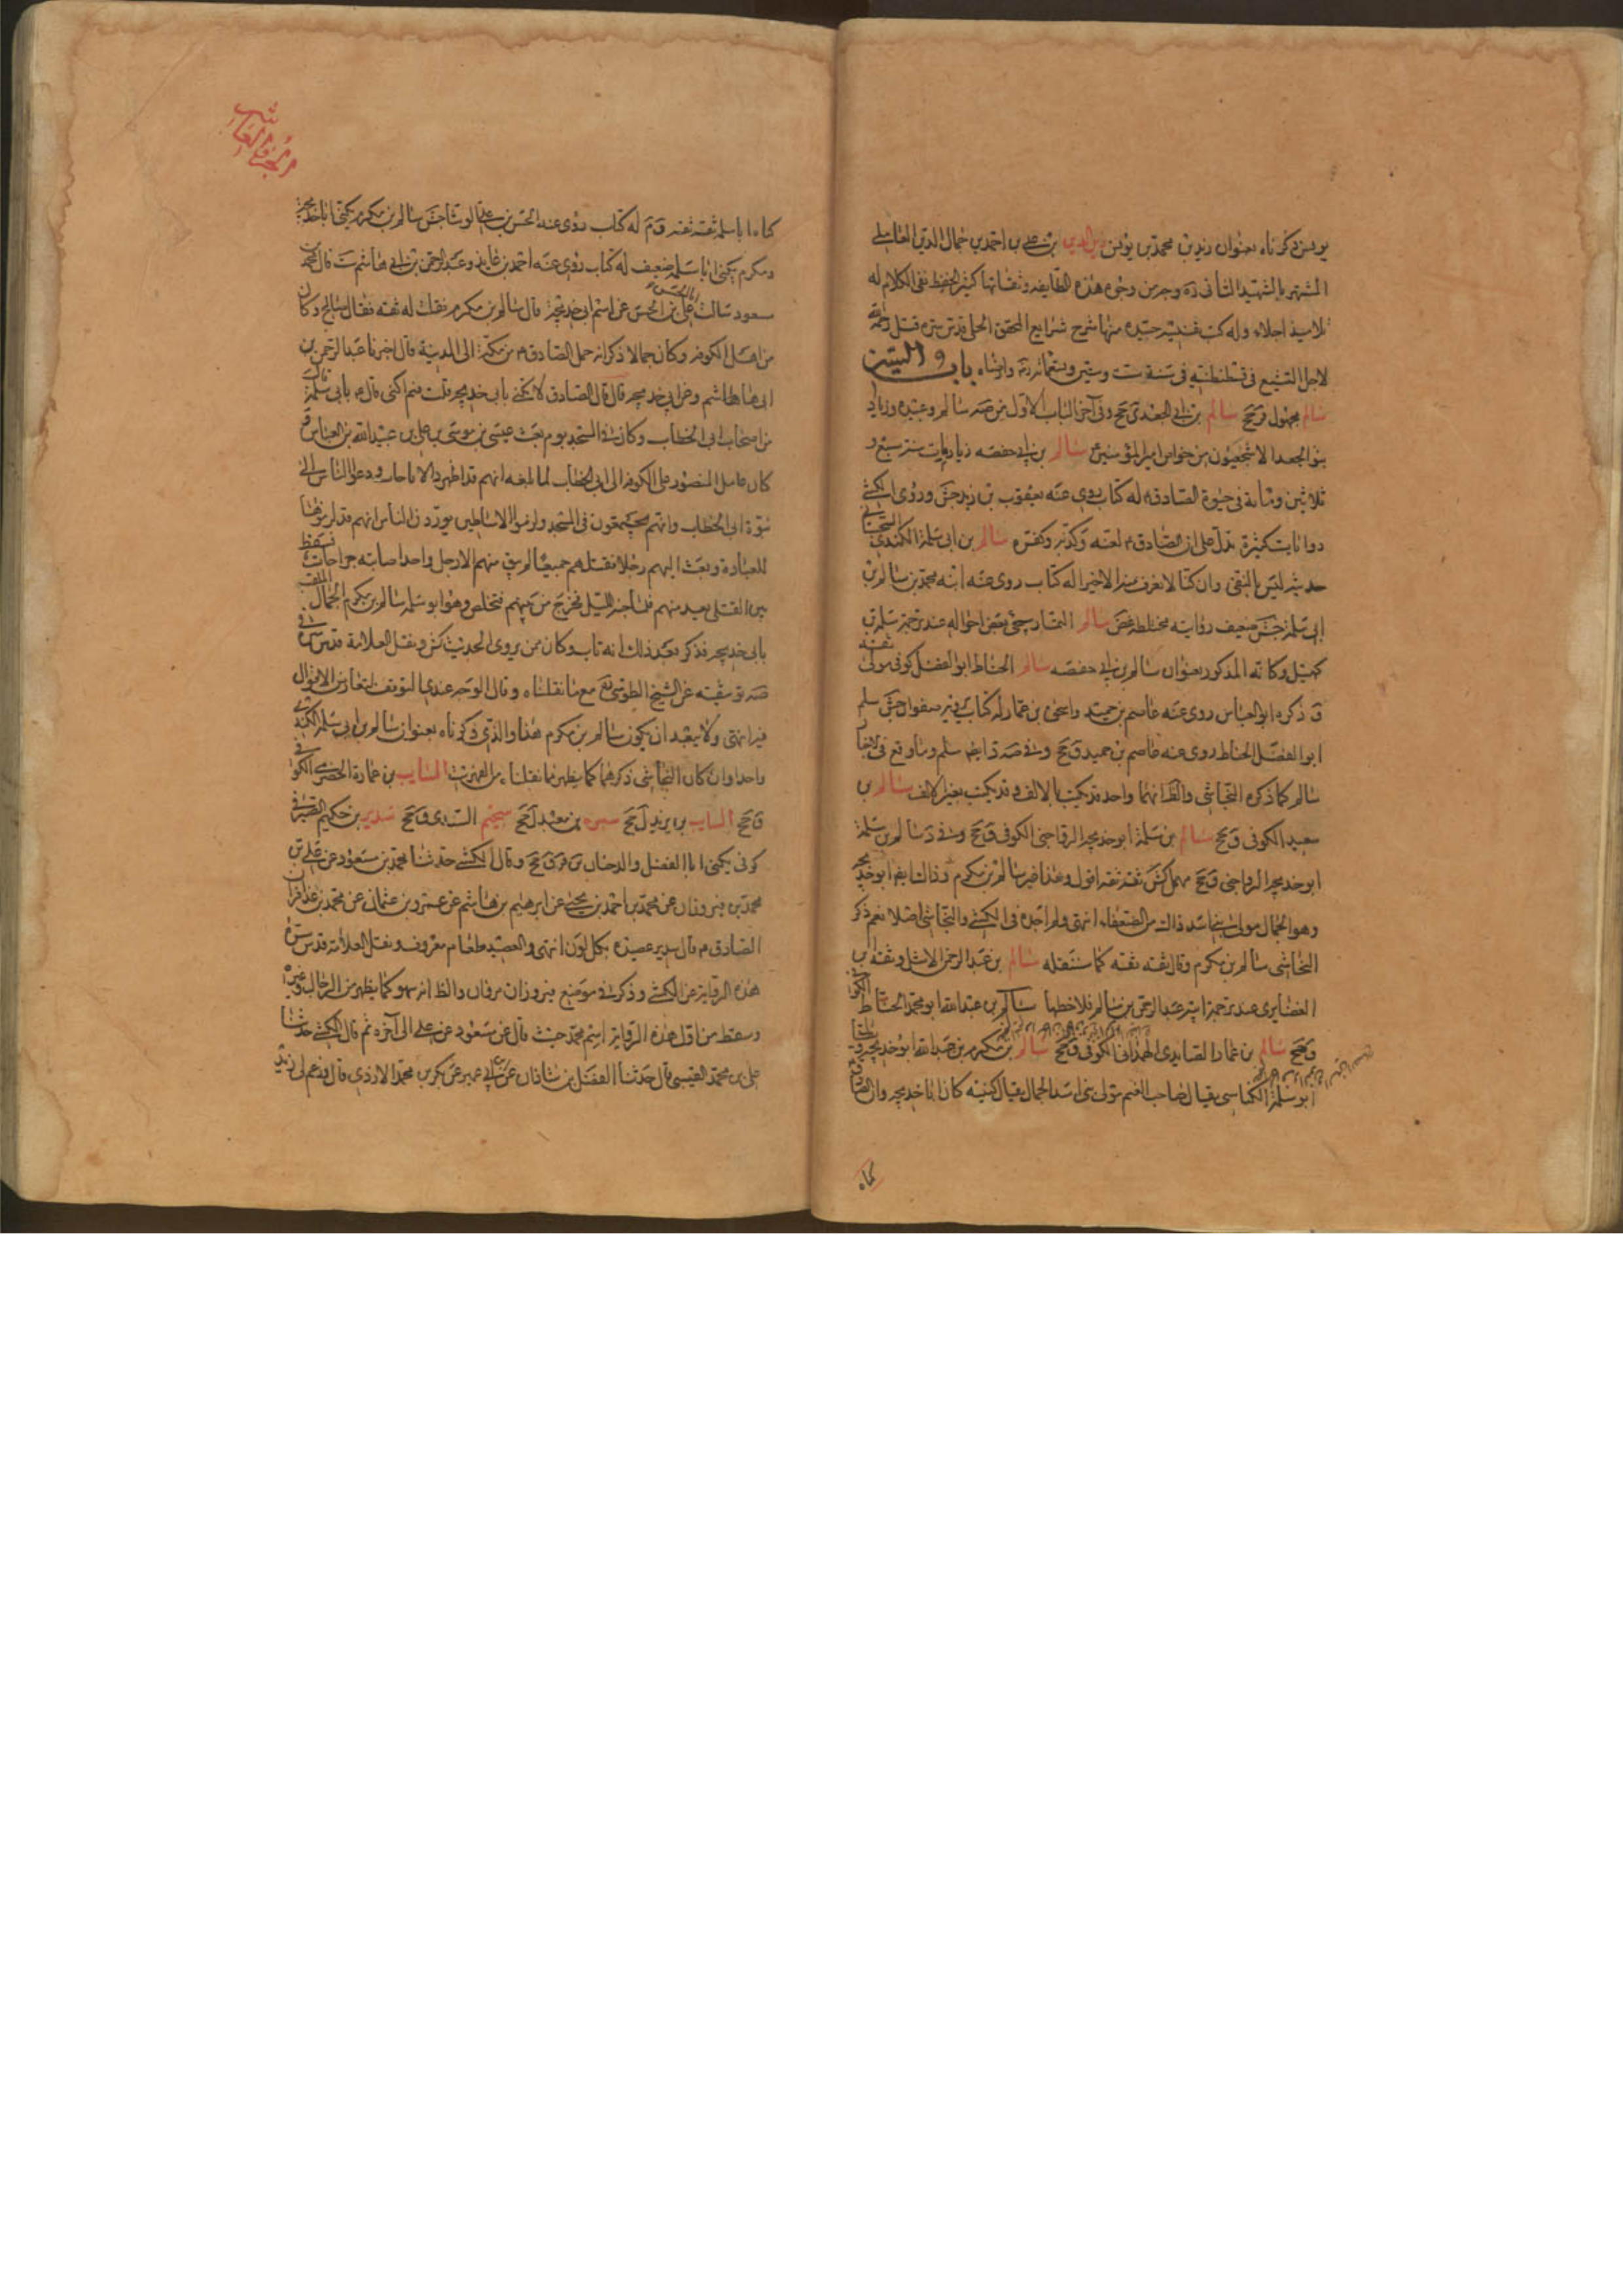 يونس ذكرناه بعنوان زيد بن محمد بن يونس زين الدين بن علي بن احمد بن جمال الدين العاملي
المشتهر بالشهيد الثاني ره وجه من وجوه هذه الطايفة وثقاتها كثير الحفظ نقى الكلام له
تلاميذ اجلاء وله كتب نفيسة جيدة منها شرح شرايع المحقق الحلي قدس سره قتل رحمه الله
لاجل التشيع في قسطنطنية في سنة ست وستين وتسعمائة رضه وارضاه باب السين
سالم مجهول قر جخ سالم بن ابي الجعد ى جخ وفي آخر الباب الاول من صه سالم وعبيده وزياد
بنو الجعد الاشجعيون من خواص امير المؤمنين ع سالم بن ابي حفصه مات سنة سبع و
ثلاثين ومائة في حيوة الصادق ع له كتاب روى عنه يعقوب بن زيد جش وروى الكشي
روايات كثيرة تدل على ان الصادق ع لعنه وكذبه وكفره سالم بن ابي سلمة الكندي السجستاني
حديثه ليس بالنقي وان كنا لا نعرف منه الا خيرا له كتاب روى عنه ابنه محمد بن سالم بن
ابي سلمة جش ضعيف رواياته مختلطة غض سالم التمار سيجئ بعض احواله عند ترجمة سلمة بن
كهيل وكانه المذكور بعنوان سالم بن ابي حفصه سالم الحناط ابو الفضل كوفي مولى ثقة
ق ذكره ابو العباس روى عنه عاصم بن حميد واسحق بن عمار له كتاب يرويه صفوان جش سلم
ابو الفضل الحناط روى عنه عاصم بن حميد ق جخ وفي صه د ايضا سلم وما وقع في
سالم كما ذكره النجاشي والظ انهما واحد قد يكتب بالالف وقد يكتب بغير الالف سالم بن
سعيد الكوفي ق جخ سالم بن سلمة ابو خديجة الرواجني الكوفي ق جخ وفي د سالم بن سلمة
ابو خديجة الرواجني ق جخ مهمل كش ثقة ثقة اقول وهذا غير سالم بن مكرم وذاك ايضا ابو خديجة
وهو الجمال مولى بني اسد ذاك من الضعفاء انتهى ولم اجده في الكشي والنجاشي اصلا نعم ذكر
النجاشي سالم بن مكرم وقال ثقة ثقة كما سننقله سالم بن عبد الرحمن الاشل وثقه ابن
الغضايري عند ترجمة ابنه عبد الرحمن بن سالم فلاحظها سالم بن عبد الله ابو محمد الحناط الكوفي
ق جخ سالم بن عمار الصايدي الهمداني الكوفي ق جخ سالم بن مكرم بن عبد الله ابو خديجة ويقال
ابو سلمة الكناسي يقال صاحب الغنم مولى بني اسد الجمال يقال كنيته كان ابا خديجة وان الصادق ع
كناه
كناه ابا سلمة ثقة ثقة ق م له كتاب روى عنه الحسن بن علي الوشا جش سالم بن مكرم يكنى ابا خديجة
ومكرم يكنى ابا سلمة ضعيف له كتاب روى عنه احمد بن عايذ وعبد الرحمن بن ابي هاشم ست قال محمد بن
مسعود سالت ابا الحسن علي بن الحسن عن اسم ابي خديجة قال سالم بن مكرم فقلت له ثقة فقال صالح وكان
من اهل الكوفة وكان جمالا ذكر انه حمل الصادق ع من مكة الى المدينة قال اخبرنا عبد الرحمن بن
ابي هاشم عن ابي خديجة قال قال الصادق لا تكتني بابي خديجة قلت فبم اكتني قال ع بابي سلمة وكان سالم
من اصحاب ابي الخطاب وكان في المسجد يوم بعث عيسى بن موسى بن علي بن عبد الله بن العباس و
كان عامل المنصور على الكوفة الى ابي الخطاب لما بلغه انهم قد اظهروا الاباحات ودعوا الناس الى
نبوة ابي الخطاب وانهم يجتمعون في المسجد ولزموا الاساطين يورون الناس انهم قد لزموها
للعبادة وبعث اليهم رجلا فقتلهم جميعا لم يبق منهم الا رجل واحد اصابته جراحات فسقط
بين القتلى يعد منهم فلما جنه الليل خرج من بينهم فتخلص وهو ابو سلمة سالم بن مكرم الجمال الملقب
بابي خديجة فذكر بعد ذلك انه تاب وكان ممن يروى الحديث كش ونقل العلامة قدس سره في
صه توثيقه عن الشيخ الطوسي مع ما نقلناه وقال الوجه عندي التوقف لتعارض الاقوال
فيه انتهى ولا يبعد ان يكون سالم بن مكرم هذا والذي ذكرناه بعنوان سالم بن ابي سلمة الكندي
واحدا وان كان النجاشي ذكرهما كما يظهر مما نقلناه من الفهرست السايب بن عمارة الحضرمي الكوفي
ق جخ السايب بن يزيد ل جخ سبره بن معبد ل جخ سحيم السندي ق جخ سدير بن حكيم الصيرفي
كوفي يكنى ابا الفضل والد حنان ين قر ق جخ وقال الكشي حدثنا محمد بن مسعود عن علي بن
محمد بن فيروزان عن محمد بن احمد بن يحيى عن ابرهيم بن هاشم عن عمرو بن عثمان عن محمد بن عذافر ان
الصادق ع قال سدير عصيدة بكل لون انتهى والعصيدة طعام معروف ونقل العلامة قدس سره
هذه الرواية عن الكشي وذكر في موضع فيروزان مروان والظ انه سهو كما يظهر من الرجال وغيره
وسقط من اول هذه الرواية اسم محمد حيث قال عن مسعود عن علي الى آخره ثم قال الكشي حدثنا
علي بن محمد القتيبي قال حدثنا الفضل بن شاذان عن ابن ابي عمير عن بكر بن محمد الازدي قال وزعم لي زيد